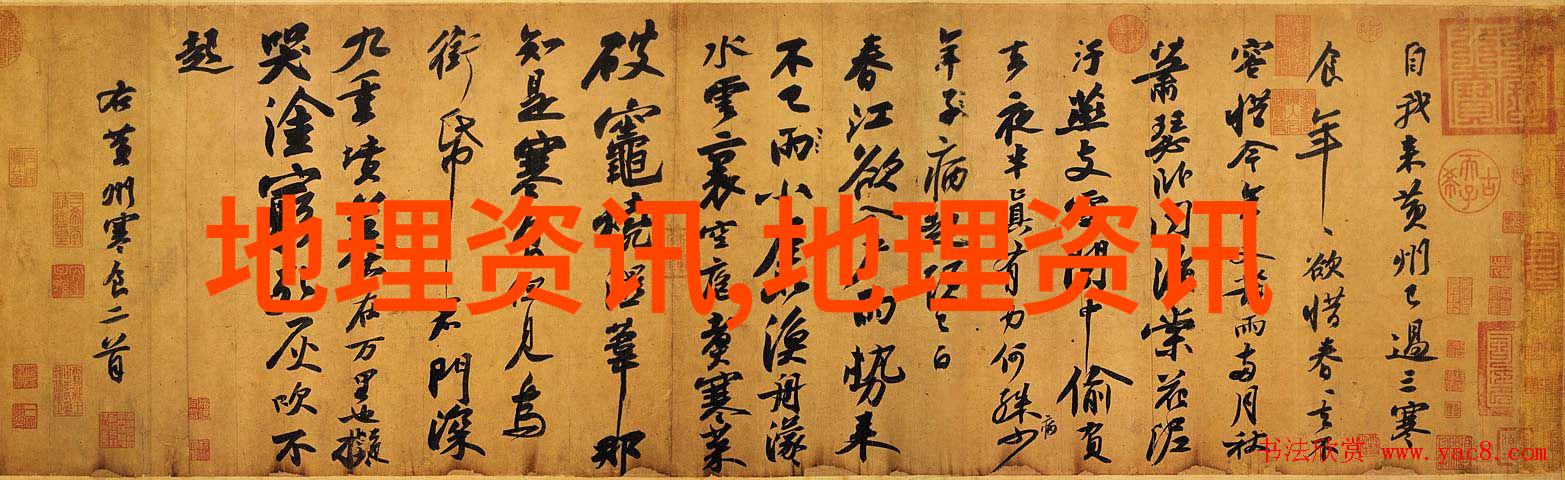 自我来黄州已過三寒
食年〻欲惜春〻去不
容惜今年又苦雨兩月秋
蕭瑟卧聞海棠花泥
汙燕支雪闇中偷負
去夜半真有力何殊少病
年子病起頭已白
春江欲入户雨勢来
不已雨小屋如漁舟濛
水雲裏空庖煮寒菜
破竈燒濕葦那
知是寒食但見烏
銜帋君門深
九重墳墓在万里也擬
哭塗窮死灰吹不
起
右黄州寒食二首
地理资讯,地理资讯
书法欣赏 www.yac8.com